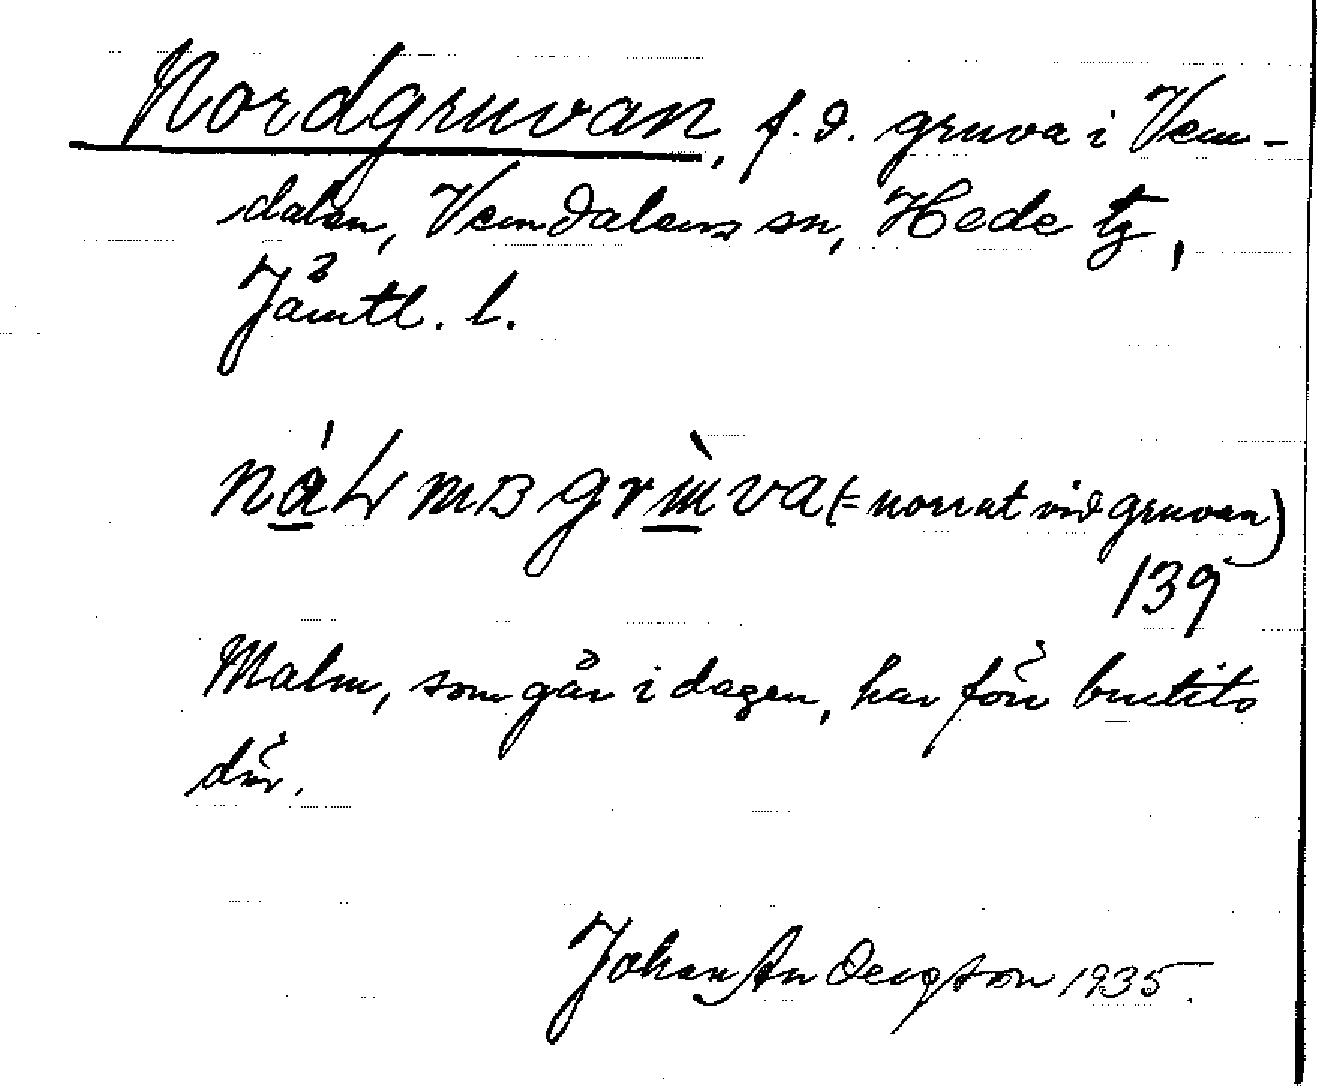 Nordgruvan, f.d. gruva i Vem-
dalen, Vemdalens sn, Hede tg,
Jämtl. l.
gruva (= norrut vid gruvan)
139
Malm, som går i dagen, har förr brutits
där.
Johan Andersson 1935.